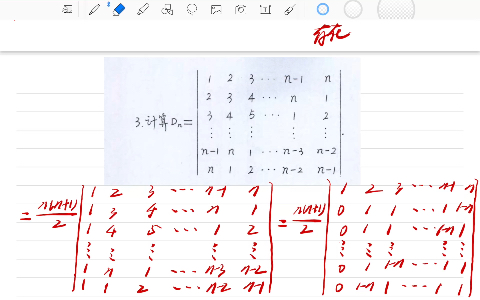 存在
3.计算Dn=
1 2 3 ··· n-1 n
2 3 4 ··· n 1
3 4 5 ··· 1 2
⋮ ⋮ ⋮ ⋮ ⋮
n-1 n 1 ··· n-3 n-2
n 1 2 ··· n-2 n-1
= n(n+1)/2
1 2 3 ··· n-1 n
1 3 4 ··· n 1
1 4 5 ··· 1 2
⋮ ⋮ ⋮ ⋮ ⋮
1 n 1 ··· n-3 n-2
1 1 2 ··· n-2 n-1
= n(n+1)/2
1 2 3 ··· n-1 n
0 1 1 ··· 1 1-n
0 1 1 ··· 1-n 1
⋮ ⋮ ⋮ ⋮ ⋮
0 1 1-n ··· 1 1
0 1-n 1 ··· 1 1